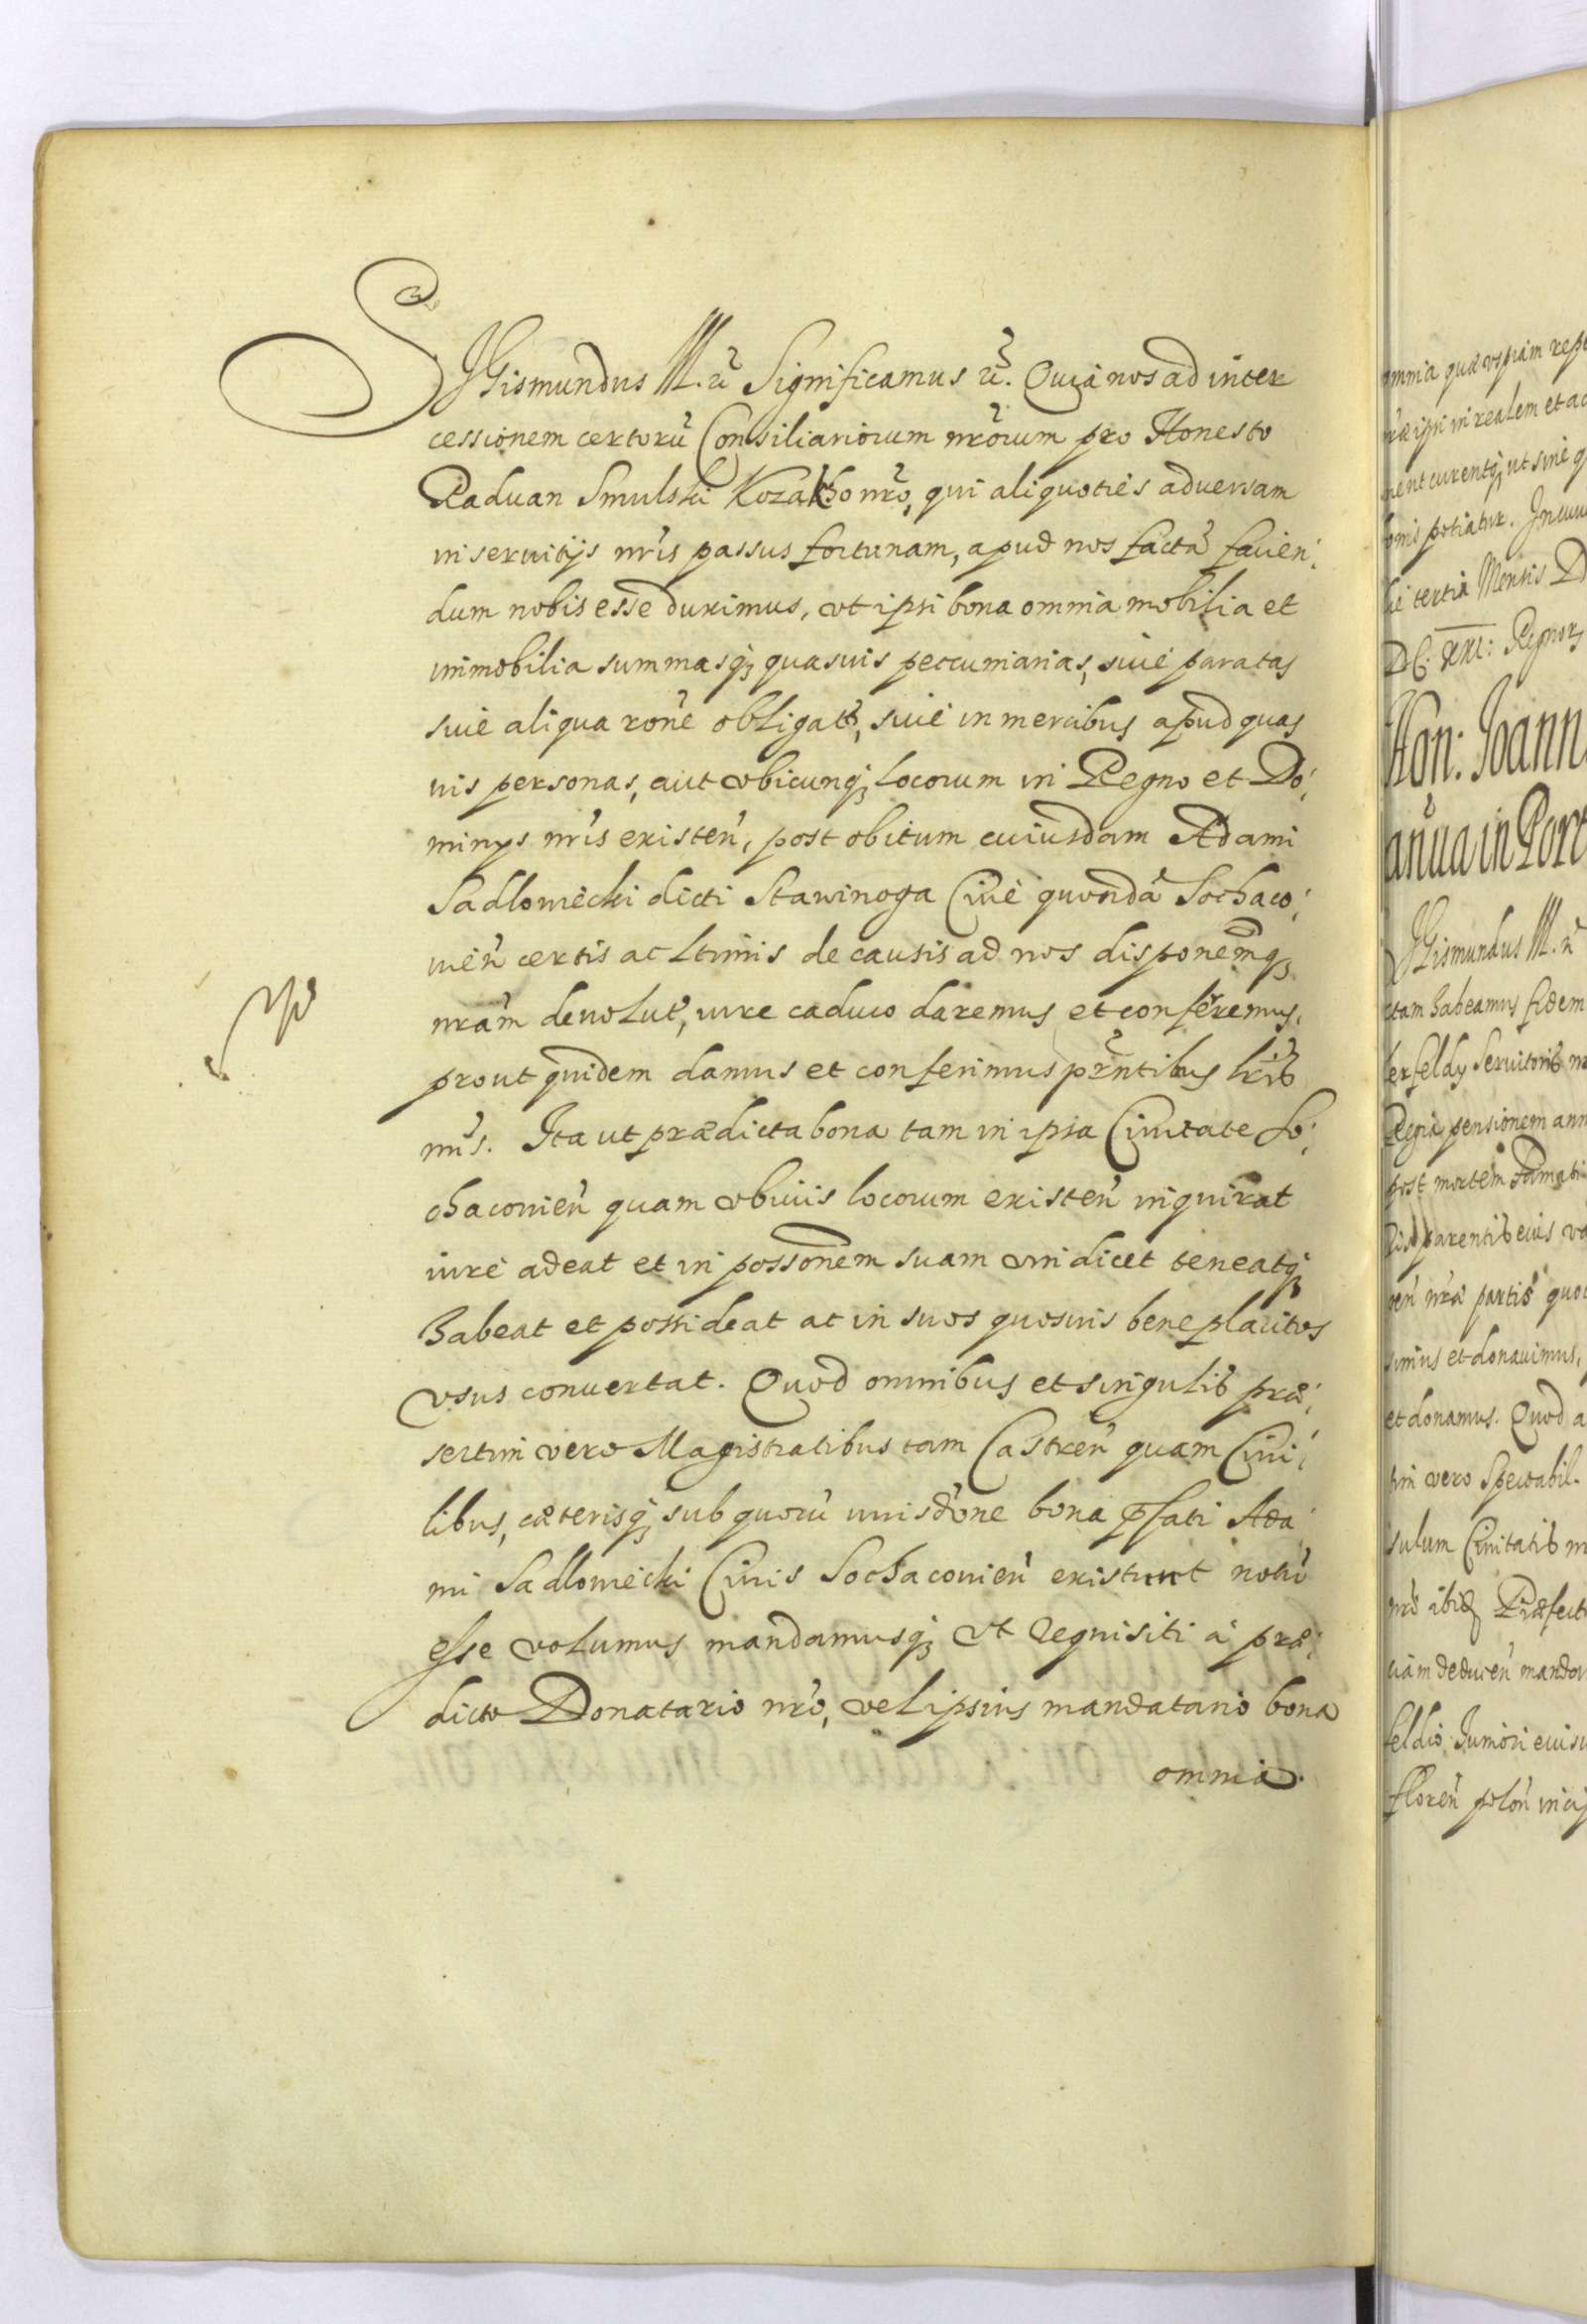 SJGismundus III. ℞ Significamus ℞. Quia nos ad inter
cessionem certorũ Consiliariorum nrorum pro Honesto
Raduan Smulski Kozakho nro, qui aliquoties aduersam
in seruitijs nris passus fortunam, apud nos factã facien:
dum nobis esse duximus, vt ipsi bona omnia mobilia et
immobilia summasq3 quasuis peccuniarias, siue paratas
siue aliqua rone obligatas, siue in mercibus apud quas
uis personas, aut vbicunq3 locorum in Regno et Do:
minys nris existeñ, post obitum cuiusdam Adami
Sadlowiecki dicti Stawinoga Ciuis quondã Sochaco:
uieñ certis ac ltimis de causis ad nos disponemq3
nram deuoluta, iure caduco daremus et conferremus,
prout quidem damus et conferimus prntibus lris
nris. Ita ut prædicta bona tam in ipsa Ciuitate So:
chacouieñ quam vbiuis locorum existeñ inquirat
iure adeat et in possonem suam vindicet teneatq3
habeat et possideat ac in suos quosuis beneplacitos
vsus conuertat. Quod omnibus et singulis præ:
sertim vero Magistratibus tam Castreñ quam Ciui:
libus, cæterisq3 sub quorũ iurisdone bona pfati Ada:
mi Sadlowiecki Ciuis Sochacouieñ existunt notũ
esse volumus mandamusq3 vt requisiti à præ:
dicto Donatario nro, vel ipsius mandatario bona
omnia
omnia quæ vspiam
in realem et
curentq3, ut sine
bonis potiatur.
tertia Mensis
DC. XXI: Regnor
Hon: Joann
añua in Port
JGismundus III. ℞
habeamus fidem
Seruitoris
Regia pensionem ann
post mortem
parentis eius
nra partis quo
et donauimus,
et donamus. Quod a
vero Spectabil.
Ciuitatis
nro ibid Præfect
deduceñ mando
Juniori eius
floreñ poloñ